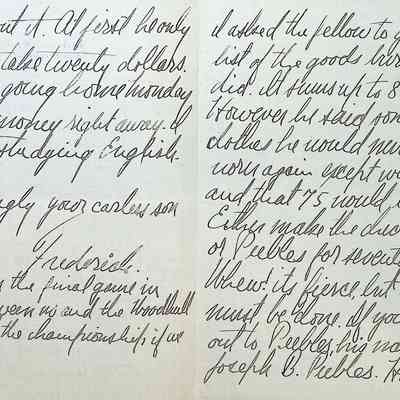 out it. At first he only
take twenty dollars.
going home monday
money right away. I
studying English.
your careless son
Frederick.
the final game in
and the Woodhull
the championship if we
I asked the fellow to g
list of the goods
did. It sums up to 8
However he said som
clothes he would nev
worn again except w
and that 75 would
Either make the chec
or Peebles for sevent
Whew! its fierce, but
must be done. If you
out to Peebles, his na
Joseph B. Peebles. H